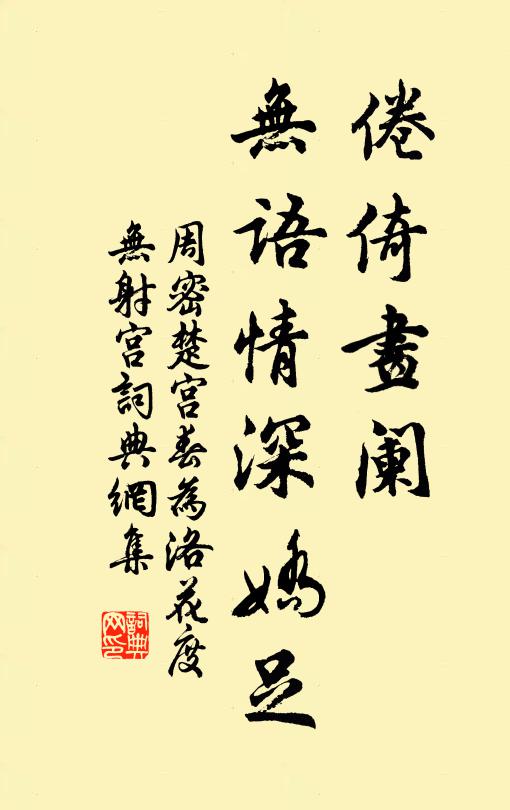 倦倚畫阑
無語情深嬌足
周密楚宫春為洛花度
無射宫詞典網集
詞典
网印